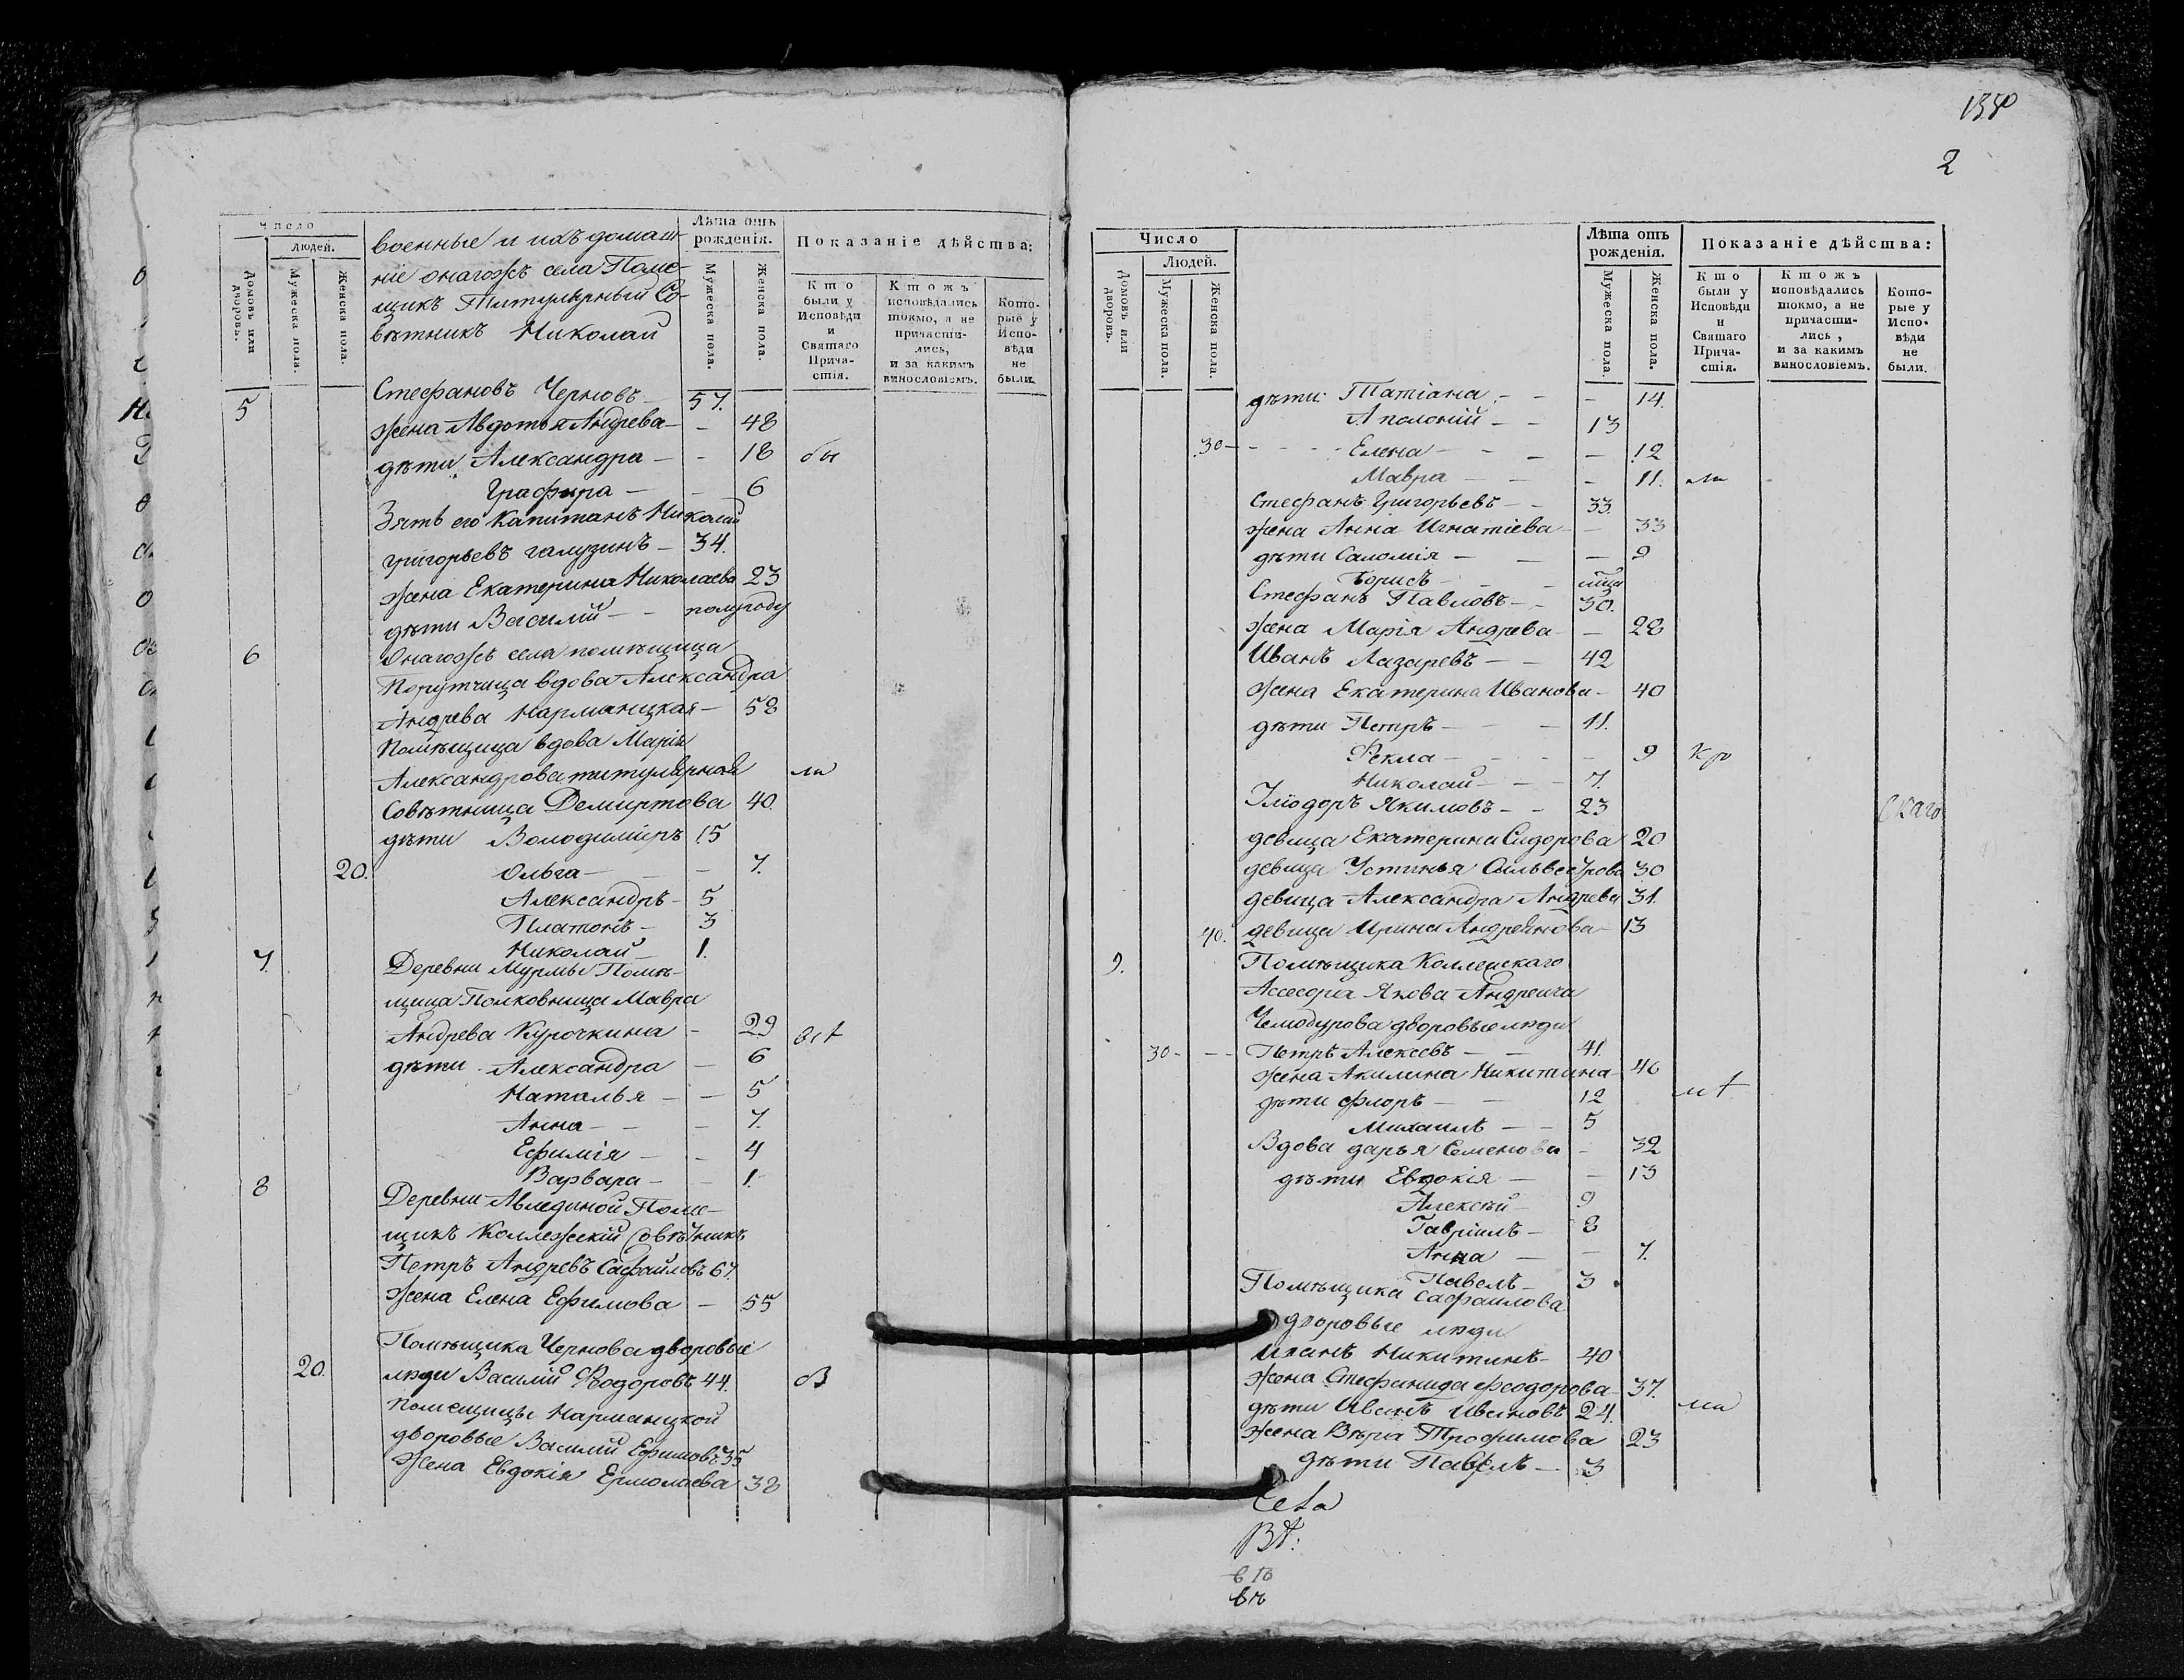 Число
Людей.
Домовъ или дворовъ.
Мужеска пола.
Женска пола.
Лѣта отъ рожденія.
Мужеска пола.
Женска пола.
Показаніе дѣйства:
Кто были у Исповѣди и Святаго Причастія.
Ктожъ исповѣдались токмо, а не причастились, и за какимъ винословіемъ.
Которые у Исповѣди не были.
военные и ихъ домаш-
ніе онагожъ села Поме-
щикъ Титулярный Со-
вѣтникъ Николай
5 Стефановъ Черновъ 57.
жена Авдотья Андрева - 48
дѣти Александра - 18 бы
Графира - 6
Зять его Капитанъ Николай
григорьевъ галузинъ 34.
жена Екатерина Николаева 23
дѣти Василій полугоду
6 Онагожъ села помѣщица
Порутчица вдова Александра
Андрева Нармацкая 58
Помѣщица вдова Марія
Александрова титулярная ли
Совѣтница Демиртова 40.
дѣти Володимиръ 15
20. Ольга - 7.
Александръ 5
Платонъ 3
Николай 1.
7. Деревни Мурмы Помѣ-
щица Полковница Мавра
Андрева Курочкина - 29
дѣти Александра - 6
Наталья - 5
Анна - 7.
Ефимія - 4
Варвара - 1.
8 Деревни Авлединой Поме-
щикъ Коллежскій Совѣтникъ
Петръ Андревъ Сафайловъ 67.
жена Елена Ефимова - 55
Помѣщика Чернова дворовые
20. люди Василій Ѳеодоровъ 44. в
помещицы Нармацкой
дворовые Василій Ефимовъ 35
жена Евдокія Ермолаева 38
1380
2
Число
Людей.
Домовъ или дворовъ.
Мужеска пола.
Женска пола.
Лѣта отъ рожденія.
Мужеска пола.
Женска пола.
Показаніе дѣйства:
Кто были у Исповѣди и Святаго Причастія.
Ктожъ исповѣдались токмо, а не причастились, и за какимъ винословіемъ.
Которые у Исповѣди не были.
дѣти Татіана - 14.
Аполоній 13
30 Елена - 12
Мавра - 11. ли
Стефанъ Григорьевъ 33.
жена Анна Игнатіева - 33
дѣти Саломія - 9
Борисъ
Стефанъ Павловъ 30.
жена Марія Андрева - 28
Иванъ Лазаревъ 42
жена Екатерина Иванова 40
дѣти Петръ 11.
Фекла - 9 кр
Николай 7.
Іліодоръ Якимовъ 23
скаго
девица Екатерина Сидорова 20
девица Устинья Сильвестрова 30
девица Александра Андрева 31.
40. девица Ирина Андреянова 13
9. Помѣщика Коллежскаго
Ассесора Якова Андреича
Чемодурова дворовые люди
30 Петръ Алексевъ 41.
жена Акилина Никитина 40
дѣти Флоръ 12
Михаилъ 5
Вдова дарья Семенова - 32
дѣти Евдокія - 13
Алексѣй 9
Гавріилъ 8
Анна - 7.
Павелъ 3
Помѣщика Сафаилова
дворовые люди
Иванъ Никитинъ 40
жена Стефанида Феодорова 37.
дѣти Иванъ Ивановъ 24. ли
жена Вѣра Трофимова 23
дѣти Павелъ 3
въ